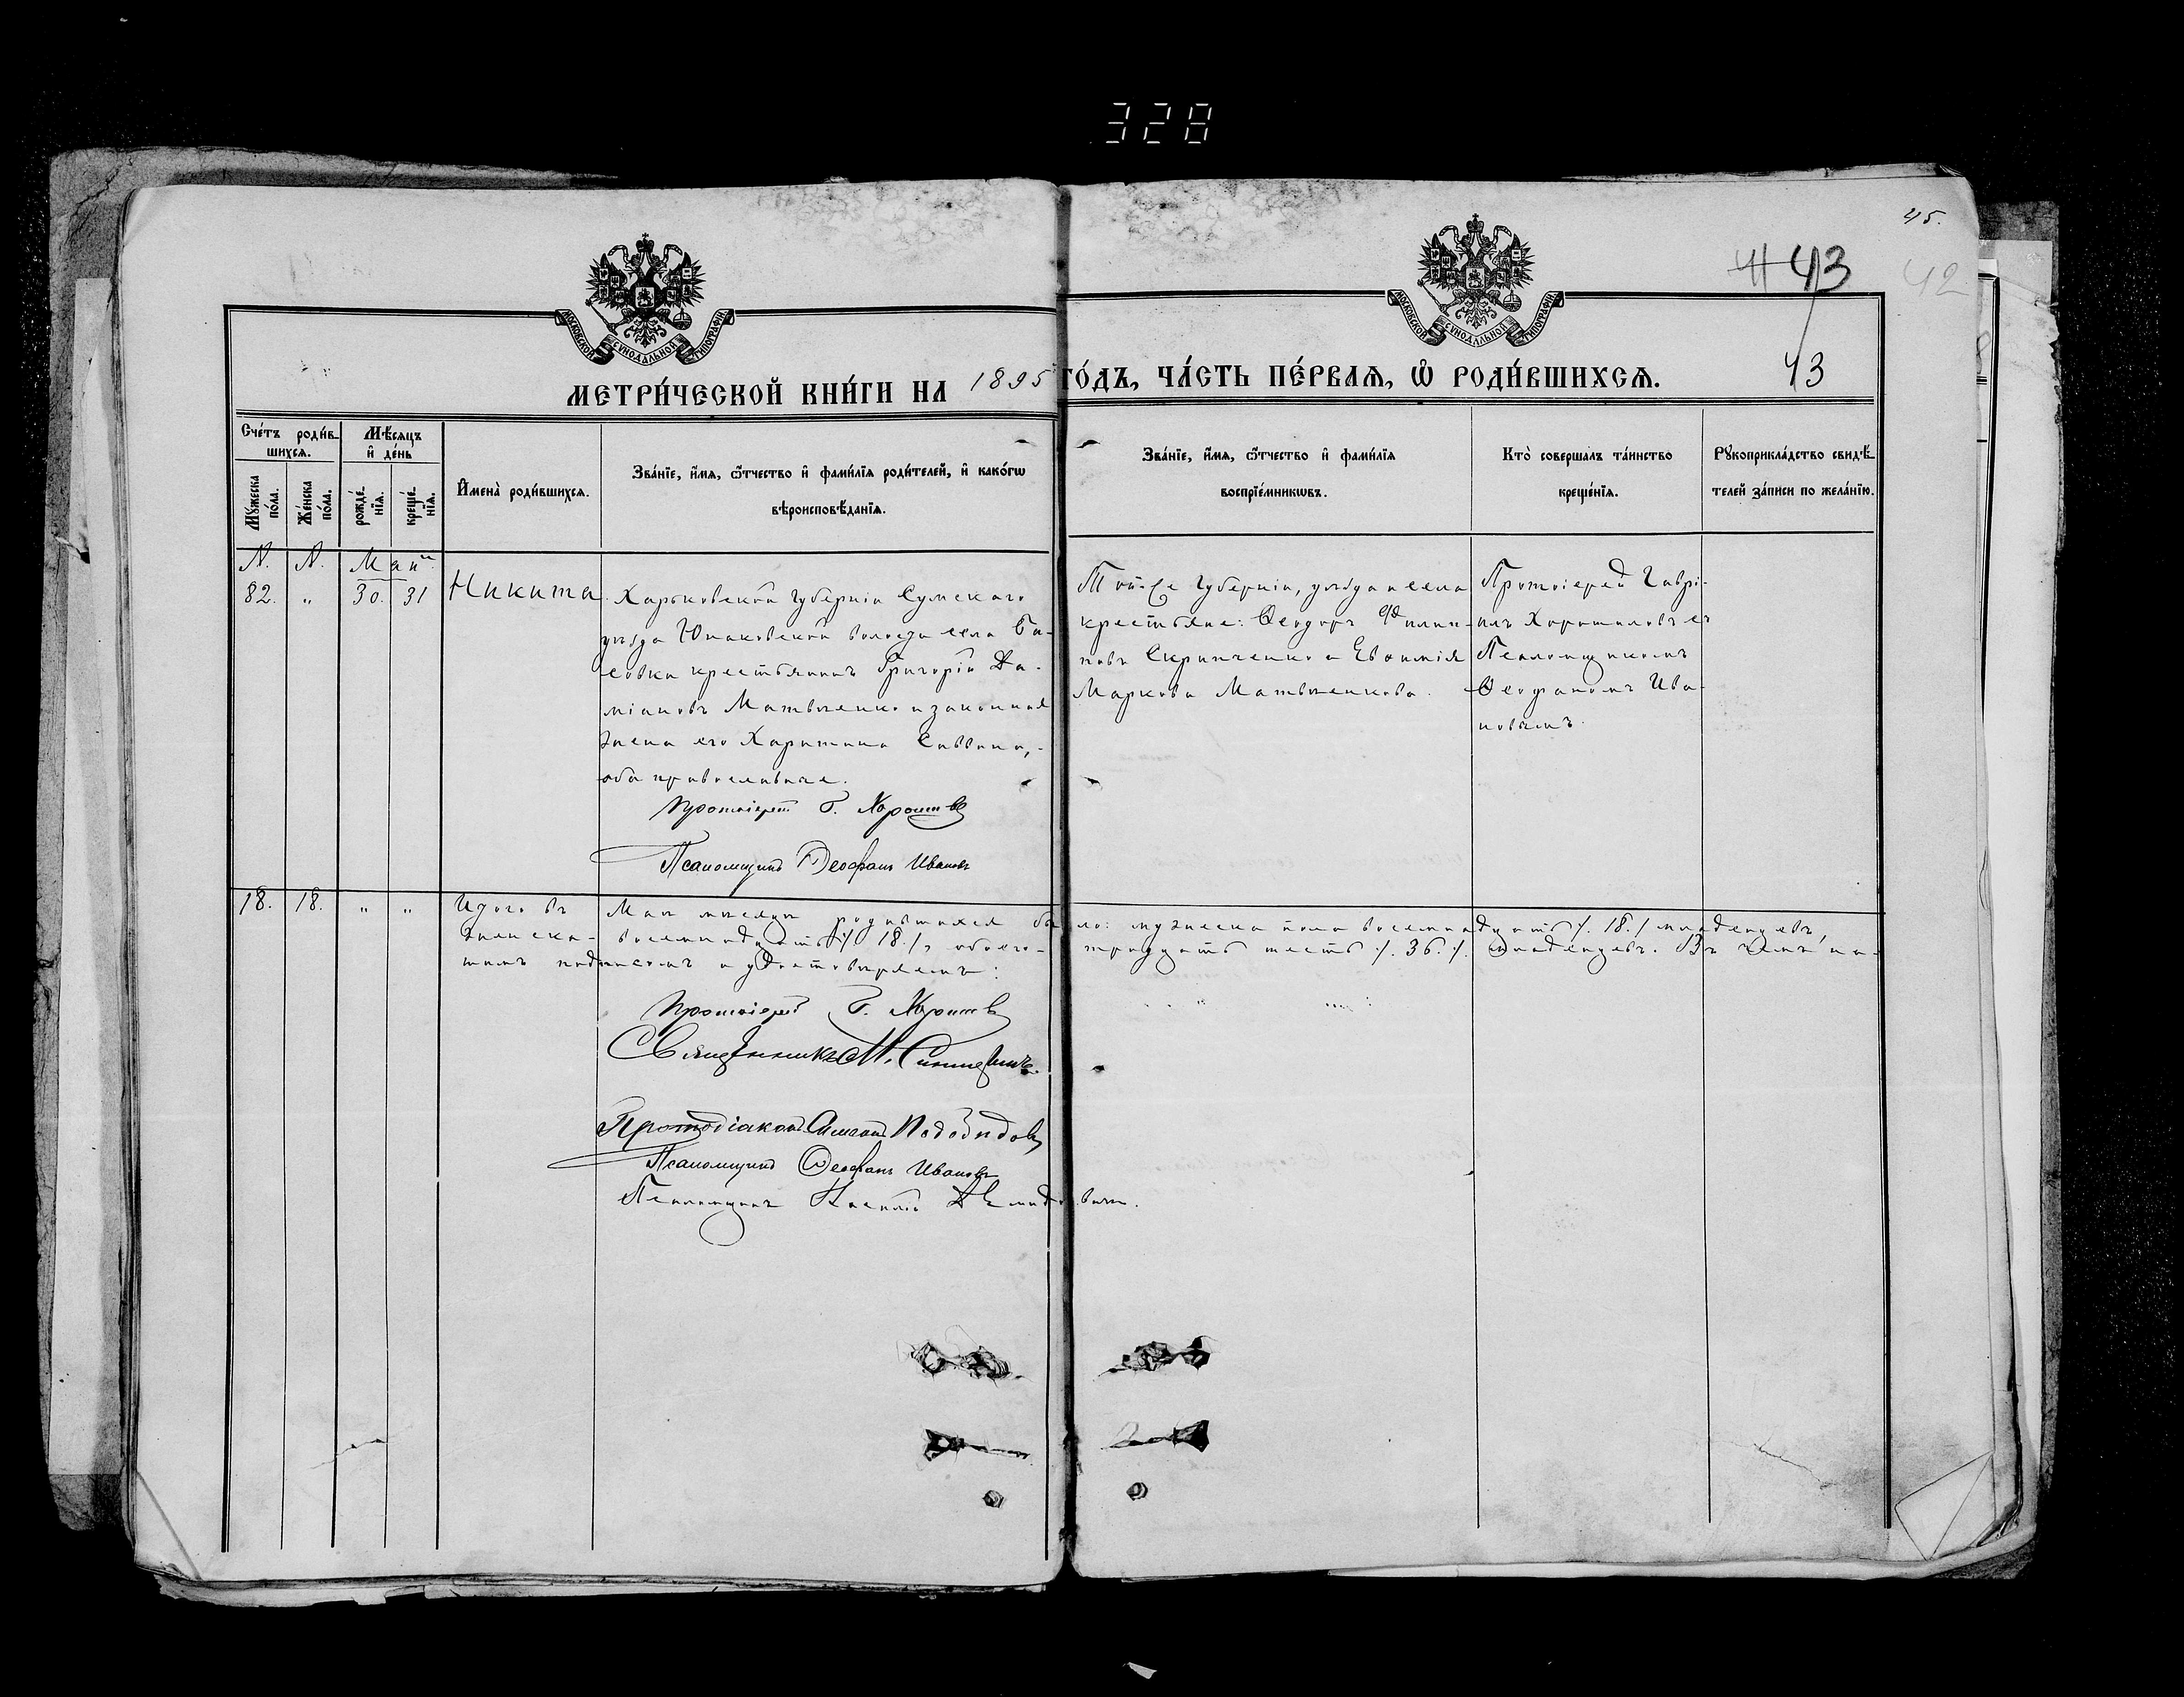 328
45.
41 43
42
МОСКОВСКОЙ СѴНОДАЛЬНОЙ ТИПОГРАФІИ
МОСКОВСКОЙ СѴНОДАЛЬНОЙ ТИПОГРАФІИ
МЕТРИ́ЧЕСКОЙ КНИ́ГИ НА 1895 ГО́ДЪ, ЧА́СТЬ ПЕ́РВАЯ, Ѡ҆ РОДИ́ВШИХСЯ.
43
Сче́тъ роди́в-
шихся.
Мѣ́сяцъ
и҆ де́нь
Мꙋ́жеска по́ла.
Же́нска по́ла.
рожде́-
нїя.
креще́-
нїя.
И҆мена̀ роди́вшихся.
Зва́нїе, и҆́мя, ѻ҆́тчество и҆ фами́лїя роди́телей, и҆ како́гѡ
вѣроисповѣ́данїя.
Зва́нїе, и҆́мя, ѻ҆́тчество и҆ фами́лїя
воспрїе́мникѡвъ.
Кто̀ соверша́лъ та́инство
креще́нїя.
Рꙋкоприкла́дство свидѣ́-
телей за́писи по жела́нїю.
N. N. Маій
82. „ 30. 31 Никита
Харьковской Губерніи Сумскаго
уѣзда Юнаковской волости села Ба-
совки крестьянинъ Григорій Да-
міановъ Матвѣенко и законная
жена его Харитина Саввина,
оба православные.
Протоіерей Г. Хорошковъ
Псаломщикъ Ѳеофанъ Ивановъ
Той-же Губерніи, уѣзда и села
крестьяне: Ѳеодоръ Филип-
повъ Скрипченко и Евѳимія
Маркова Матвѣенкова.
Протоіерей Гаврі-
илъ съ
Псаломщикомъ
Ѳеофаномъ Ива-
новымъ.
18. 18. „ „ Итого въ Маѣ мѣсяцѣ родившихся было: мужеска пола восемнадцать /. 18. / младенцевъ,
женска- восемнадцать /. 18. /, обоего- тридцать шесть /. 36. /. младенцевъ. Въ чемъ и с-
подписомъ и удостовѣряемъ:
Протоіерей Г.
Священникъ М.
Протодіаконъ
Псаломщикъ Ѳеофанъ Ивановъ
Псаломщикъ